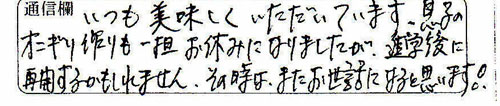 通信欄 いつも美味しくいただいています。息子の
オニギリ作りも一担お休みになりましたが、進学後に
再開するかもしれません。その時は、またお世話になると思います!